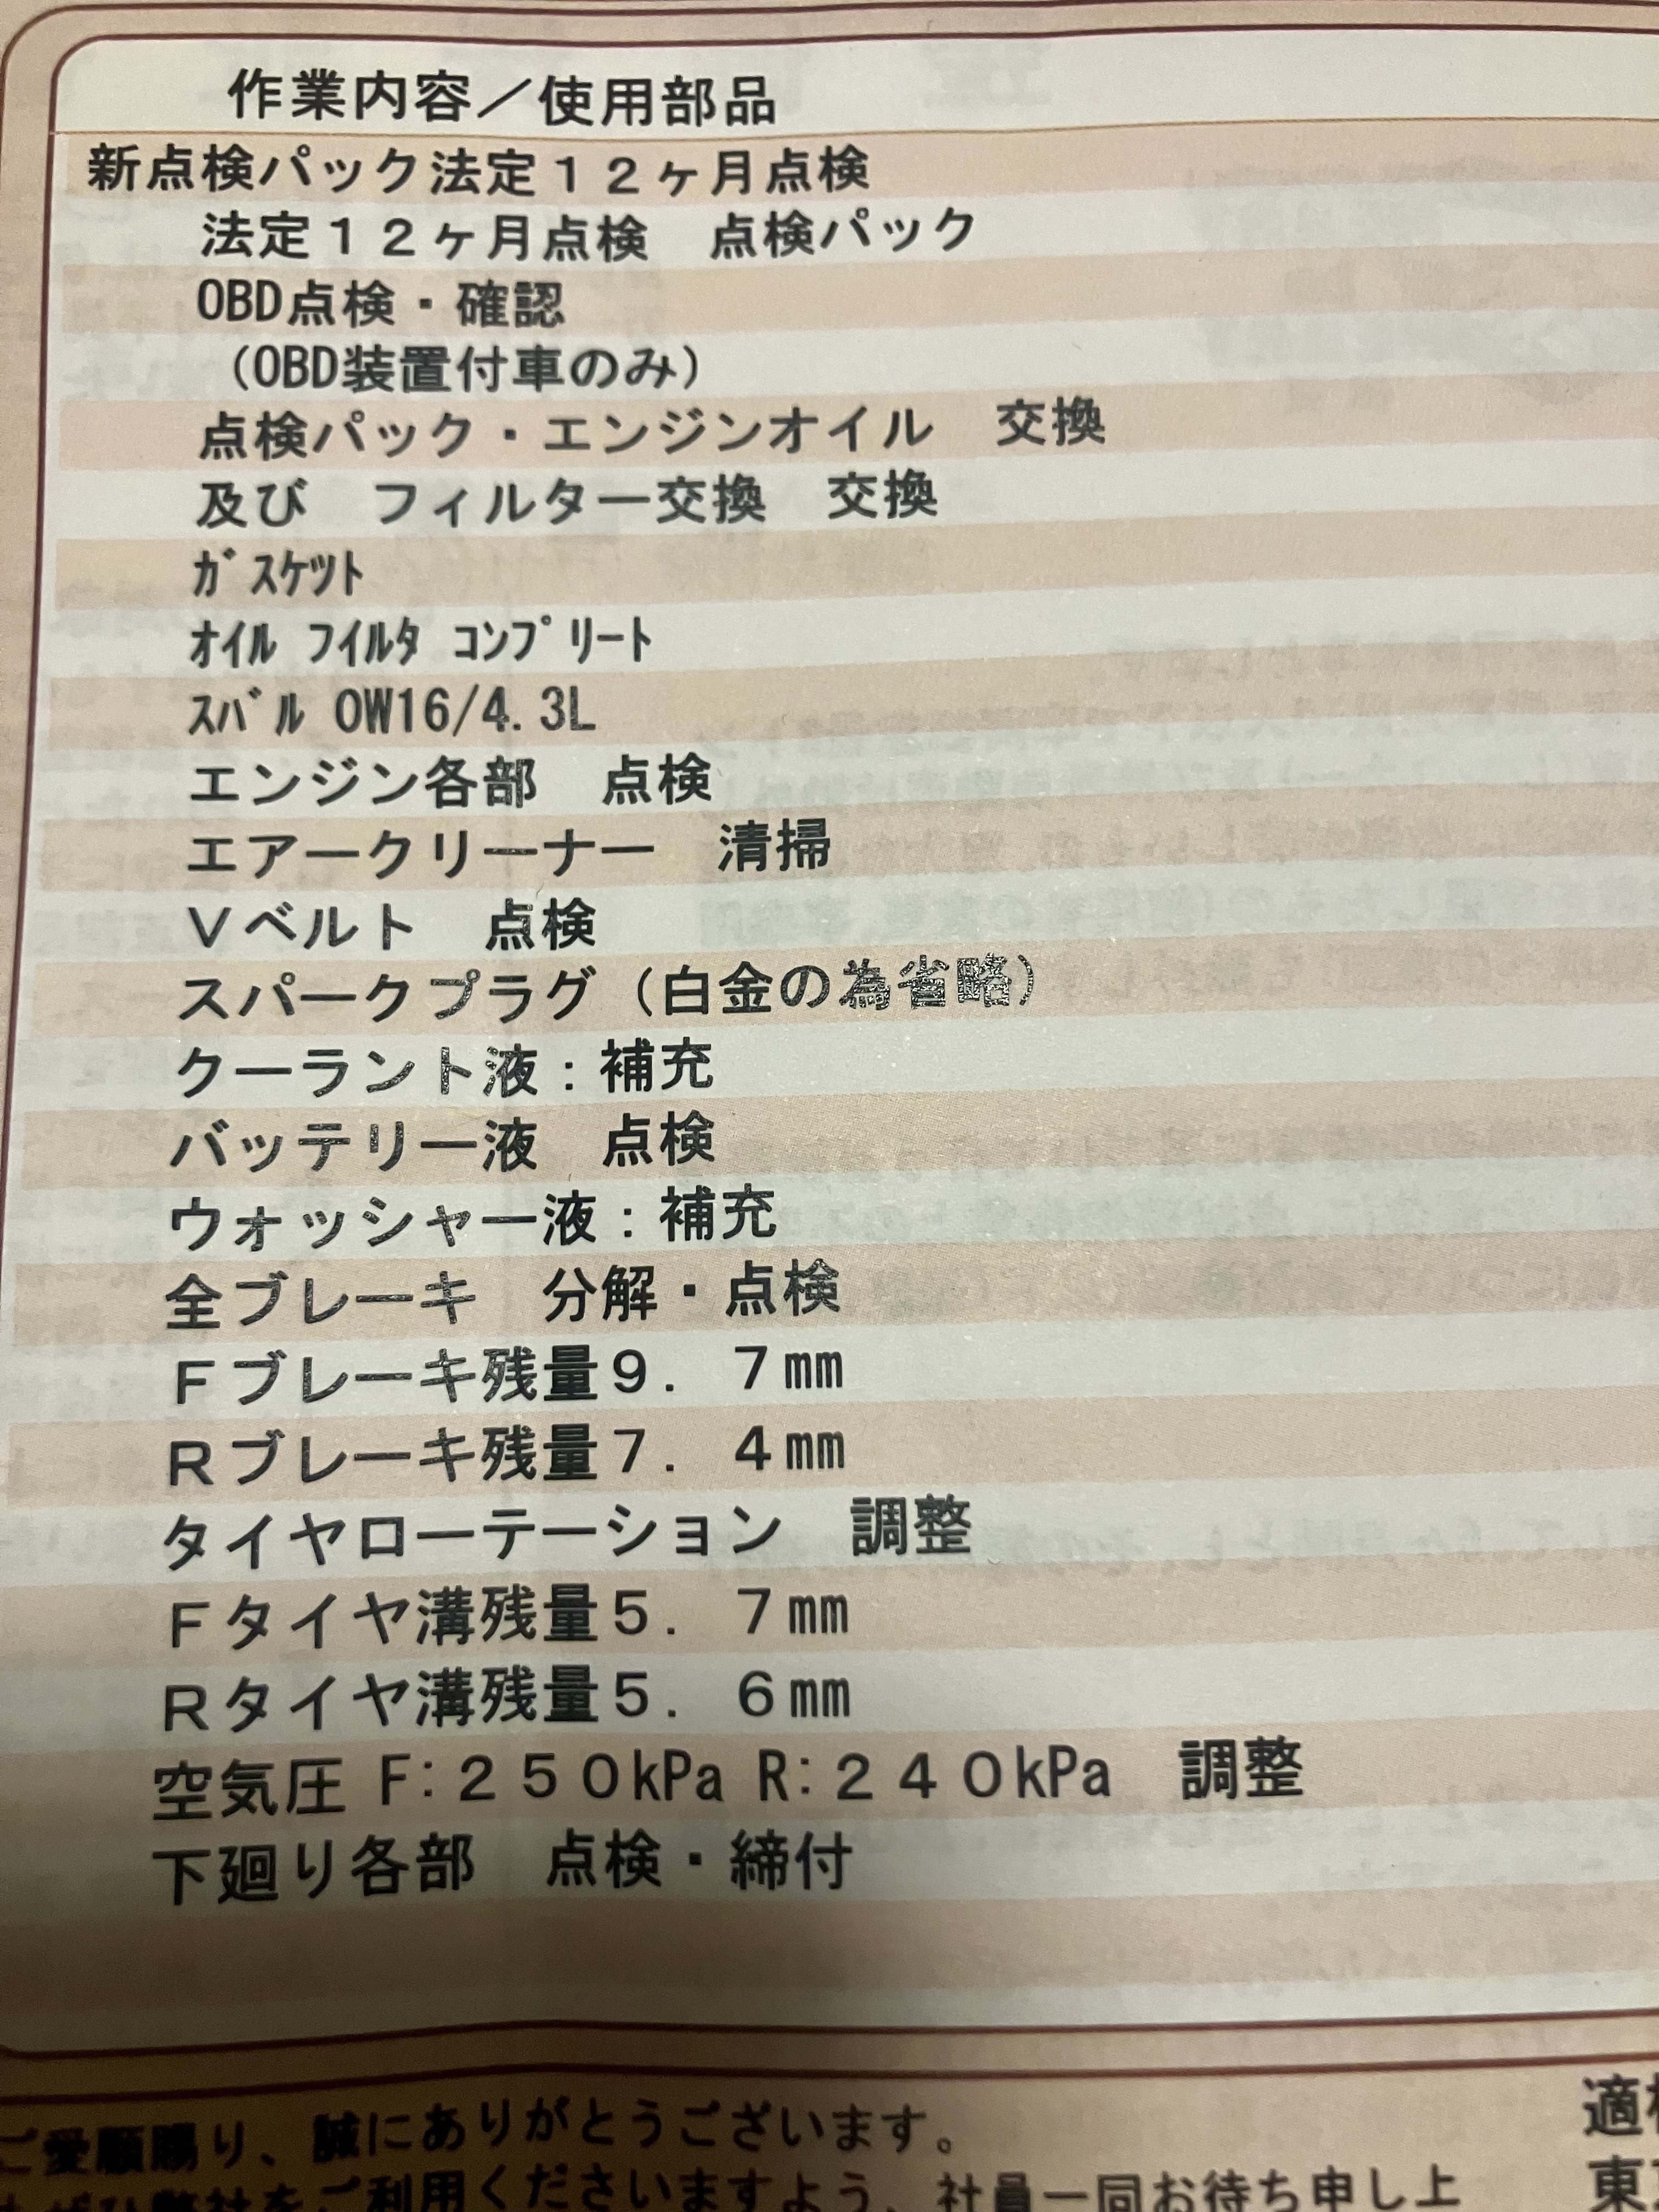 作業内容／使用部品
新点検パック法定１２ヶ月点検
法定１２ヶ月点検　点検パック
OBD点検・確認
（OBD装置付車のみ）
点検パック・エンジンオイル　交換
及び　フィルター交換　交換
ｶﾞｽｹﾂﾄ
ｵｲﾙ ﾌｲﾙﾀ ｺﾝﾌﾟﾘｰﾄ
ｽﾊﾞﾙ 0W16/4.3L
エンジン各部　点検
エアークリーナー　清掃
Ｖベルト　点検
スパークプラグ（白金の為省略）
クーラント液：補充
バッテリー液　点検
ウォッシャー液：補充
全ブレーキ　分解・点検
Ｆブレーキ残量９．７㎜
Ｒブレーキ残量７．４㎜
タイヤローテーション　調整
Ｆタイヤ溝残量５．７㎜
Ｒタイヤ溝残量５．６㎜
空気圧 F:２５０kPa R:２４０kPa　調整
下廻り各部　点検・締付
ご愛顧賜り、誠にありがとうございます。
ぜひ弊社をご利用くださいますよう、社員一同お待ち申し上
適
東